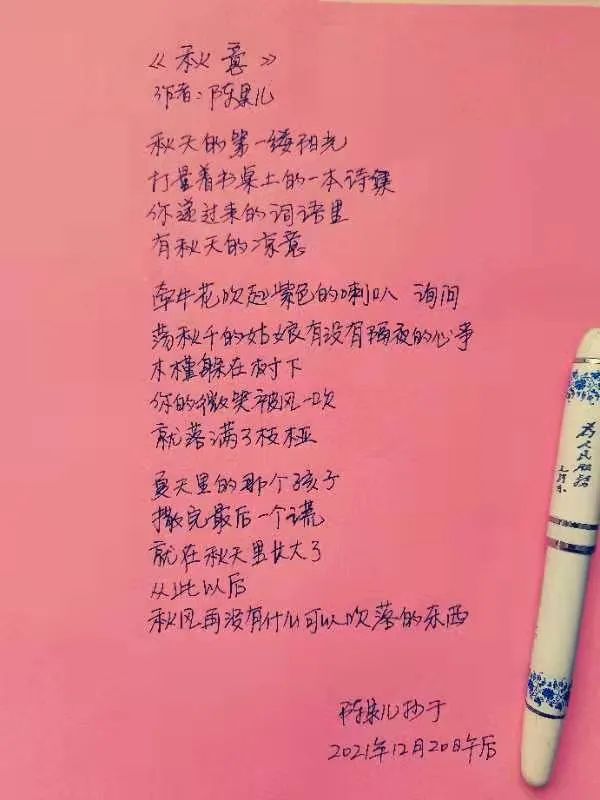 《秋意》
作者：陈果儿
秋天的第一缕阳光
打量着书桌上的一本诗集
你递过来的词语里
有秋天的凉意
牵牛花吹起紫色的喇叭 询问
荡秋千的姑娘有没有隔夜的心事
木槿躲在树下
你的微笑被风一吹
就落满了枝桠
夏天里的那个孩子
撒完最后一个谎
就在秋天里长大了
从此以后
秋风再没有什么可以吹落的东西
陈果儿抄于
2021年12月20日午后
为人民服务
毛泽东